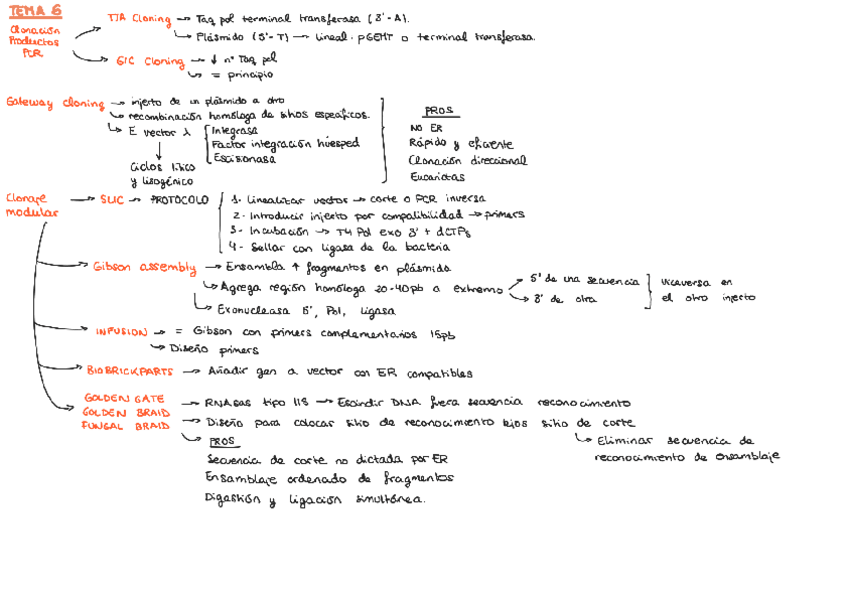 TEMA 6
Clonación
Productos
PCR
T/A Cloning → Taq pol terminal transferasa (3'-A).
→ Plásmido (5'-T) → lineal. pGEMT o terminal transferasa.
G/C Cloning → ↓ nº Taq pol
→ = principio
Gateway cloning → injerto de un plásmido a otro
→ recombinación homóloga de sitios específicos.
→ E vector λ
Integrasa
Factor integración húesped
Escisionasa
Ciclos lítico
y lisogénico
PROS
NO ER
Rápido y eficiente
Clonación direccional
Eucariotas
Clonaje
modular
→ SLIC → PROTOCOLO
1- Linealizar vector → corte o PCR inversa
2- Introducir injerto por compatibilidad → primers
3- Incubación → T4 Pol exo 3' + dCTPs
4- Sellar con ligasa de la bacteria
Gibson assembly → Ensambla ↑ fragmentos en plásmido
→ Agrega región homóloga 20-40pb a extremo
5' de una secuencia
3' de otra
viceversa en
el otro injerto
→ Exonucleasa 5', Pol, ligasa
INFUSION → = Gibson con primers complementarios 15pb
→ Diseño primers
BIOBRICKPARTS → Añadir gen a vector con ER compatibles
GOLDEN GATE
GOLDEN BRAID
FUNGAL BRAID
→ RNAsas tipo IIS → Escindir DNA fuera secuencia reconocimiento
→ Diseño para colocar sitio de reconocimiento lejos sitio de corte
→ Eliminar secuencia de
reconocimiento de ensamblaje
→ PROS
Secuencia de corte no dictada por ER
Ensamblaje ordenado de fragmentos
Digestión y ligación simultánea.